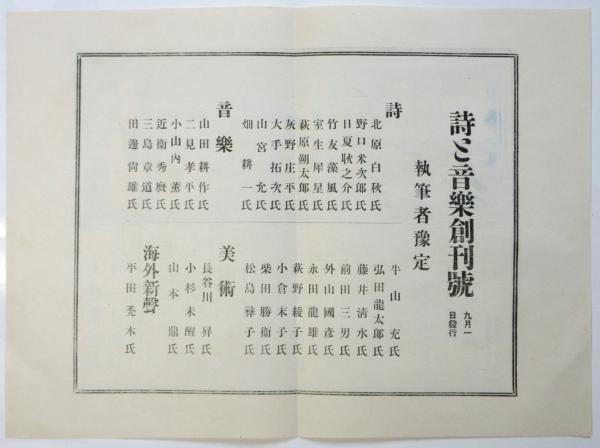 詩と音樂創刊號 九月一日發行
執筆者豫定
詩
北原白秋氏
野口米次郎氏
日夏耿之介氏
竹友藻風氏
室生犀星氏
萩原朔太郎氏
灰野庄平氏
大手拓次氏
山宮允氏
畑耕一氏
音樂
山田耕作氏
二見孝平氏
小山内薫氏
近衞秀麿氏
三島章道氏
田邊尚雄氏
牛山充氏
弘田龍太郎氏
藤井清水氏
前田三男氏
外山國彦氏
永田龍雄氏
萩野綾子氏
小倉末子氏
柴田勝衞氏
松島彜子氏
美術
長谷川昇氏
小杉未醒氏
山本鼎氏
海外新聲
平田禿木氏